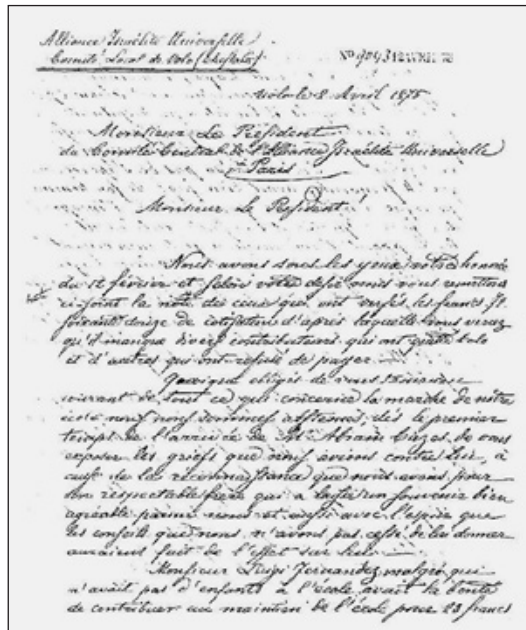 Alliance Israélite Universelle
Comité Local de Volo (Thessalie)
No 9093 12 AVRIL 78
Volo le 2 Avril 1878
Monsieur Le Président
du Comité Central de l'Alliance Israélite Universelle
Paris
Monsieur Le President!
Nous avons sous les yeux votre honorée
du 12 février et selon votre desir nous vous remettons
ci-joint la note des ceux qui ont versés les francs 72
soixante douze de cotisation d'après laquelle vous verez
qu'il manque divers contributeurs qui ont quitté Volo
et d'autres qui ont refusé de payer.
Quoique obligés de vous
courant de tout ce qui concerne la marche de notre
école nous nous sommes abstenus, dès le premier
temps de l'arrivée de Mr Abram Cazes, de vous
exposer les griefs que nous avions contre lui, à
cause de la reconnaissance que nous avons pour
son respectable frère qui a laissé un souvenir bien
agréable parmi nous et aussi avec l'espoir que
les conseils que nous n'avons pas cessé de lui donner
auraient fait de l'effet sur lui.
Monsieur Luigi Fernandez malgré qui
n'avait pas d'enfants à l'école avait la bonté
de contribuer au maintien de l'école pour 23 francs